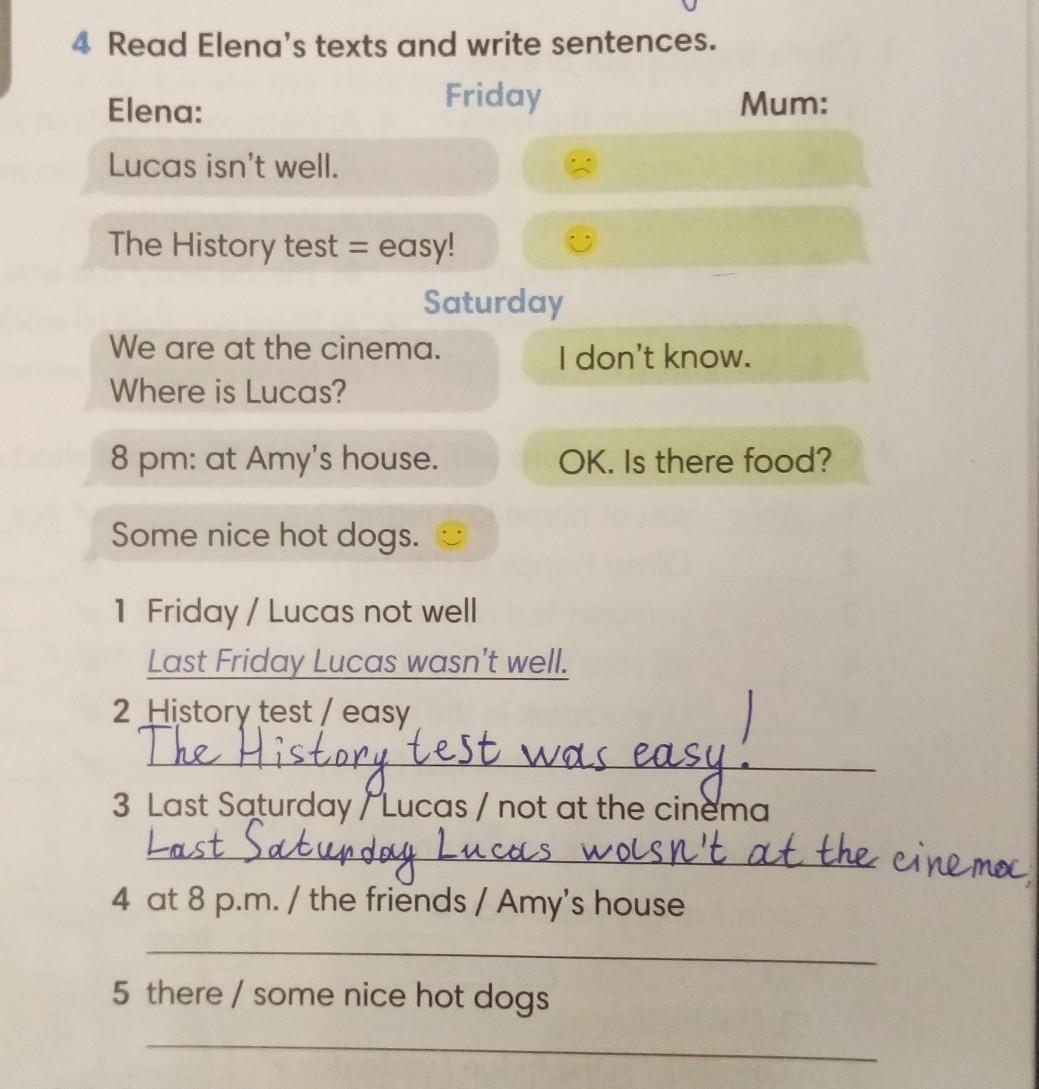 4 Read Elena's texts and write sentences.
Elena: Friday Mum:
Lucas isn't well.
The History test = easy!
Saturday
We are at the cinema. I don't know.
Where is Lucas?
8 pm: at Amy's house. OK. Is there food?
Some nice hot dogs.
1 Friday / Lucas not well
Last Friday Lucas wasn't well.
2 History test / easy
The History test was easy!
3 Last Saturday / Lucas / not at the cinema
Last Saturday Lucas wasn't at the cinema.
4 at 8 p.m. / the friends / Amy's house
5 there / some nice hot dogs